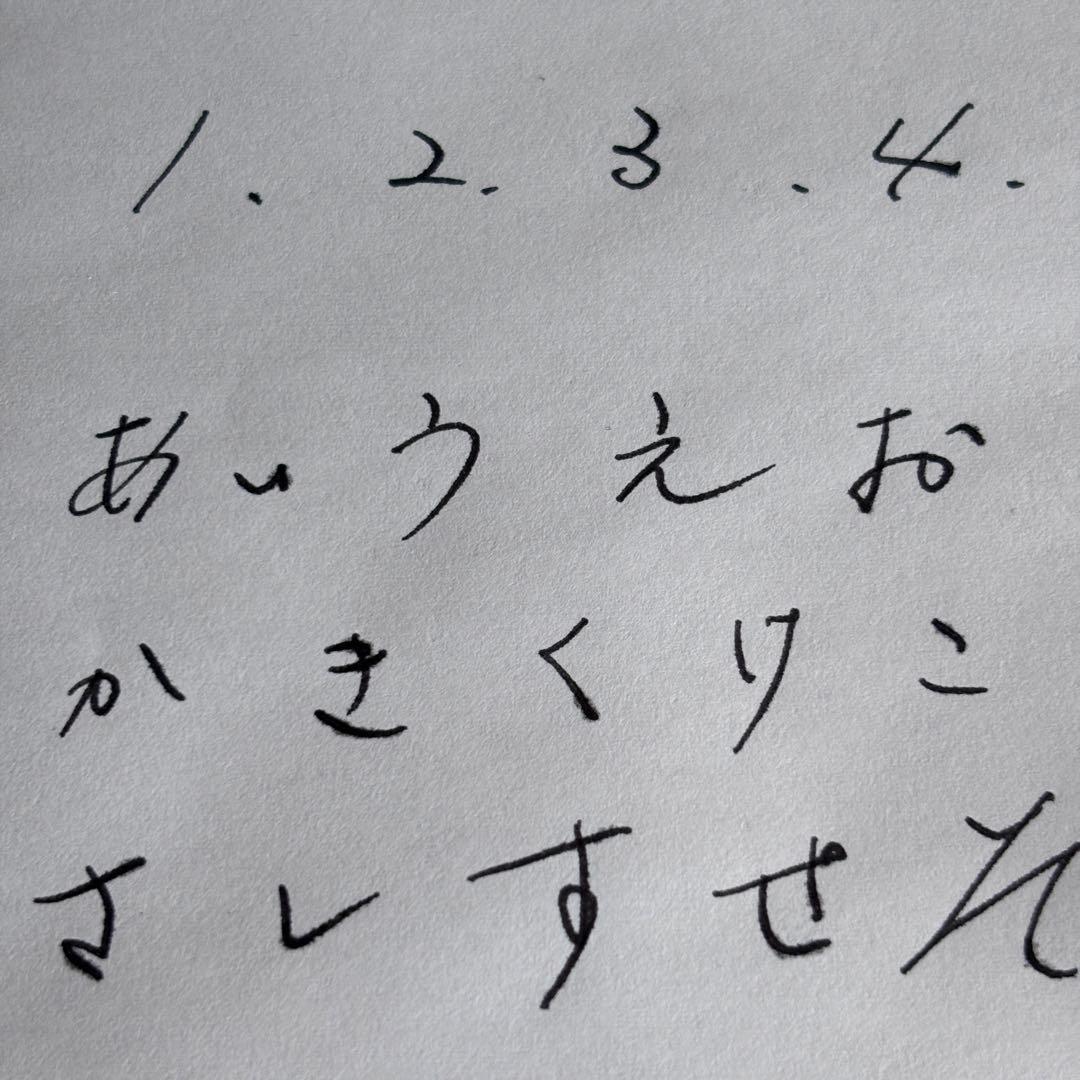 1. 2. 3. 4.
あ い う え お
か き く け こ
さ し す せ そ